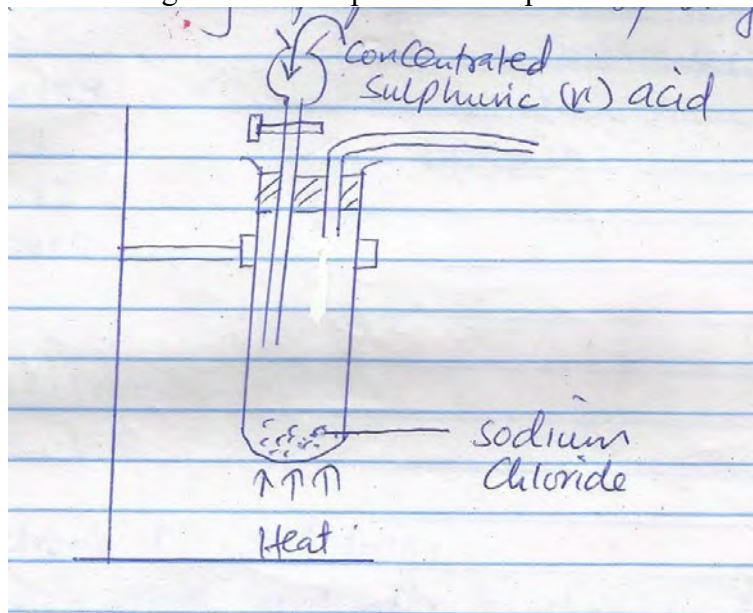 Concentrated
Sulphuric (vi) acid
Sodium
Chloride
Heat